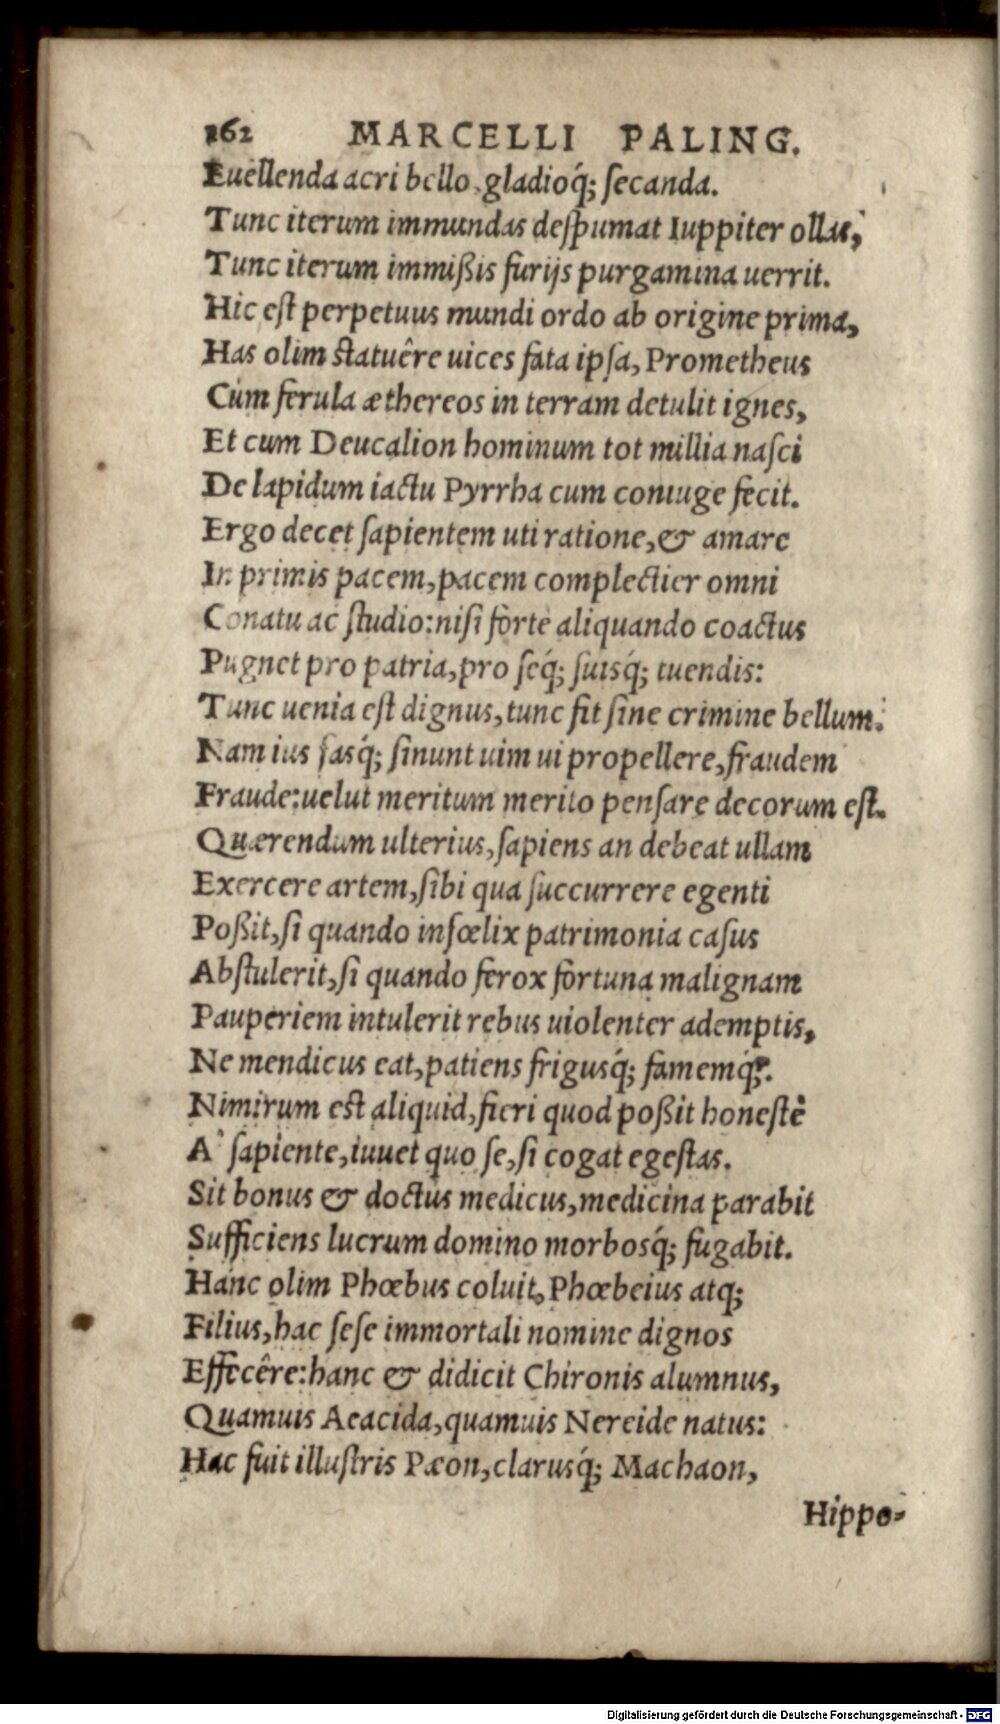 162 MARCELLI PALING.
Euellenda acri bello, gladioq́; ſecanda.
Tunc iterum immundas deſpumat Iuppiter ollas,
Tunc iterum immißis furijs purgamina uerrit.
Hic eſt perpetuus mundi ordo ab origine prima,
Has olim ſtatuêre uices fata ipſa, Prometheus
Cùm ferula æthereos in terram detulit ignes,
Et cum Deucalion hominum tot millia naſci
De lapidum iactu Pyrrha cum coniuge fecit.
Ergo decet ſapientem uti ratione, & amare
In primis pacem, pacem complectier omni
Conatu ac ſtudio: niſi forte aliquando coactus
Pugnet pro patria, pro ſeq́; ſuisq́; tuendis:
Tunc uenia eſt dignus, tunc fit ſine crimine bellum.
Nam ius fasq́; ſinunt uim ui propellere, fraudem
Fraude: uelut meritum merito penſare decorum eſt.
Quærendum ulterius, ſapiens an debeat ullam
Exercere artem, ſibi qua ſuccurrere egenti
Poßit, ſi quando infœlix patrimonia caſus
Abſtulerit, ſi quando ferox fortuna malignam
Pauperiem intulerit rebus uiolenter ademptis,
Ne mendicus eat, patiens frigusq́; famemq́;.
Nimirum est aliquid, fieri quod poßit honeſtè
A` ſapiente, iuuet quo ſe, ſi cogat egeſtas.
Sit bonus & doctus medicus, medicina parabit
Sufficiens lucrum domino morbosq́; fugabit.
Hanc olim Phœbus coluit, Phœbeius atq;
Filius, hac ſeſe immortali nomine dignos
Effecêre: hanc & didicit Chironis alumnus,
Quamuis Aeacida, quamuis Nereide natus:
Hac fuit illuſtris Pæon, clarusq́; Machaon,
Hippo-
Digitalisierung gefördert durch die Deutsche Forschungsgemeinschaft - DFG